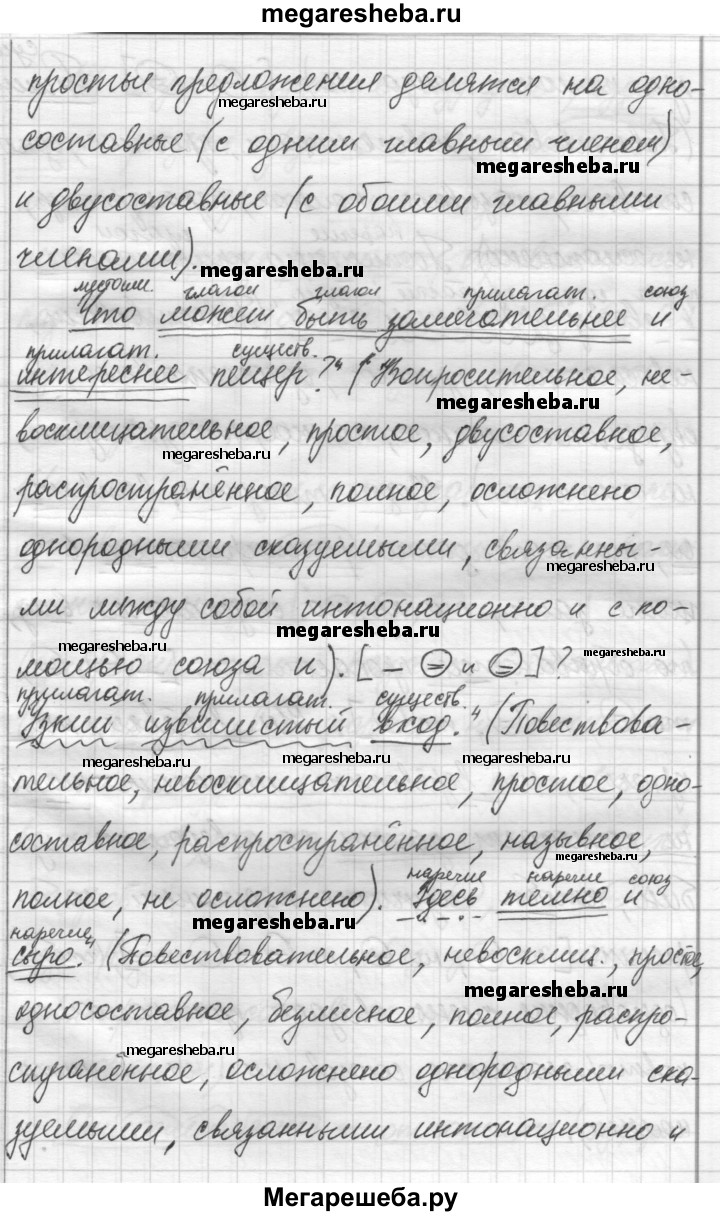 megaresheba.ru
простые предложения делятся на одно-
megaresheba.ru megaresheba.ru
составные (с одним главным членом)
megaresheba.ru
и двусоставные (с обоими главными
членами).
megaresheba.ru
местоим. глагол глагол прилагат. союз
Что может быть замечательнее и
прилагат. существ.
интереснее пещер?" (Вопросительное, не-
megaresheba.ru
восклицательное, простое, двусоставное,
megaresheba.ru
распространённое, полное, осложнено
однородными сказуемыми, связанны-
megaresheba.ru
ми между собой интонационно и с по-
megaresheba.ru megaresheba.ru megaresheba.ru
мощью союза и). [– = и =]?
прилагат. прилагат. существ.
Узкий извилистый вход." (Повествова-
megaresheba.ru megaresheba.ru megaresheba.ru
тельное, невосклицательное, простое, одно-
составное, распространённое, назывное,
megaresheba.ru
наречие наречие союз
полное, не осложнено). Здесь темно и
megaresheba.ru
наречие
сыро." (Повествовательное, невосклиц., простое,
megaresheba.ru
односоставное, безличное, полное, распро-
megaresheba.ru
странённое, осложнено однородными ска-
megaresheba.ru
зуемыми, связанными интонационно и
Мегарешеба.ру